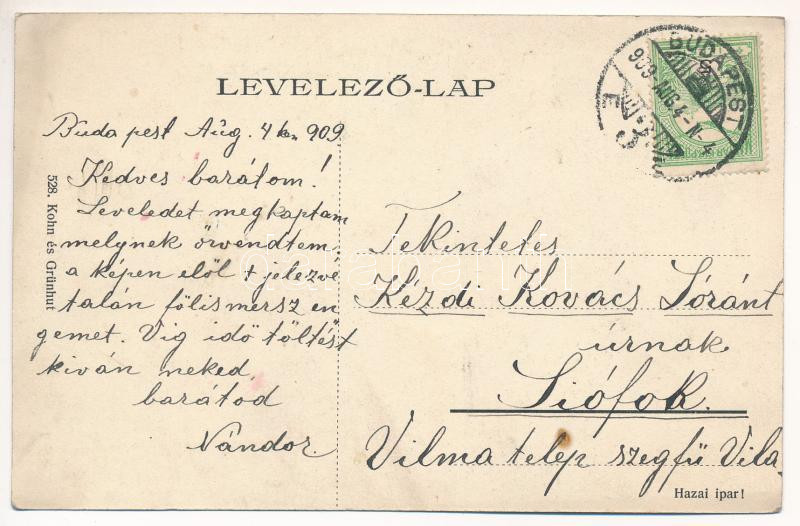 LEVELEZŐ-LAP
BUDAPEST
909 AUG. 4-N. 4
Budapest Aug. 4 én 909
Kedves barátom!
Leveledet megkaptam
melynek örvendtem,
a képen elöl + jelezve
talán fölismersz en
gemet. Vig idő töltést
kiván neked,
barátod
Nándor.
528. Kohn és Grünhut
Tekintetes
Kézdi Kovács Lóránt
úrnak
Siófok.
Vilma telep szegfü Vila
Hazai ipar!